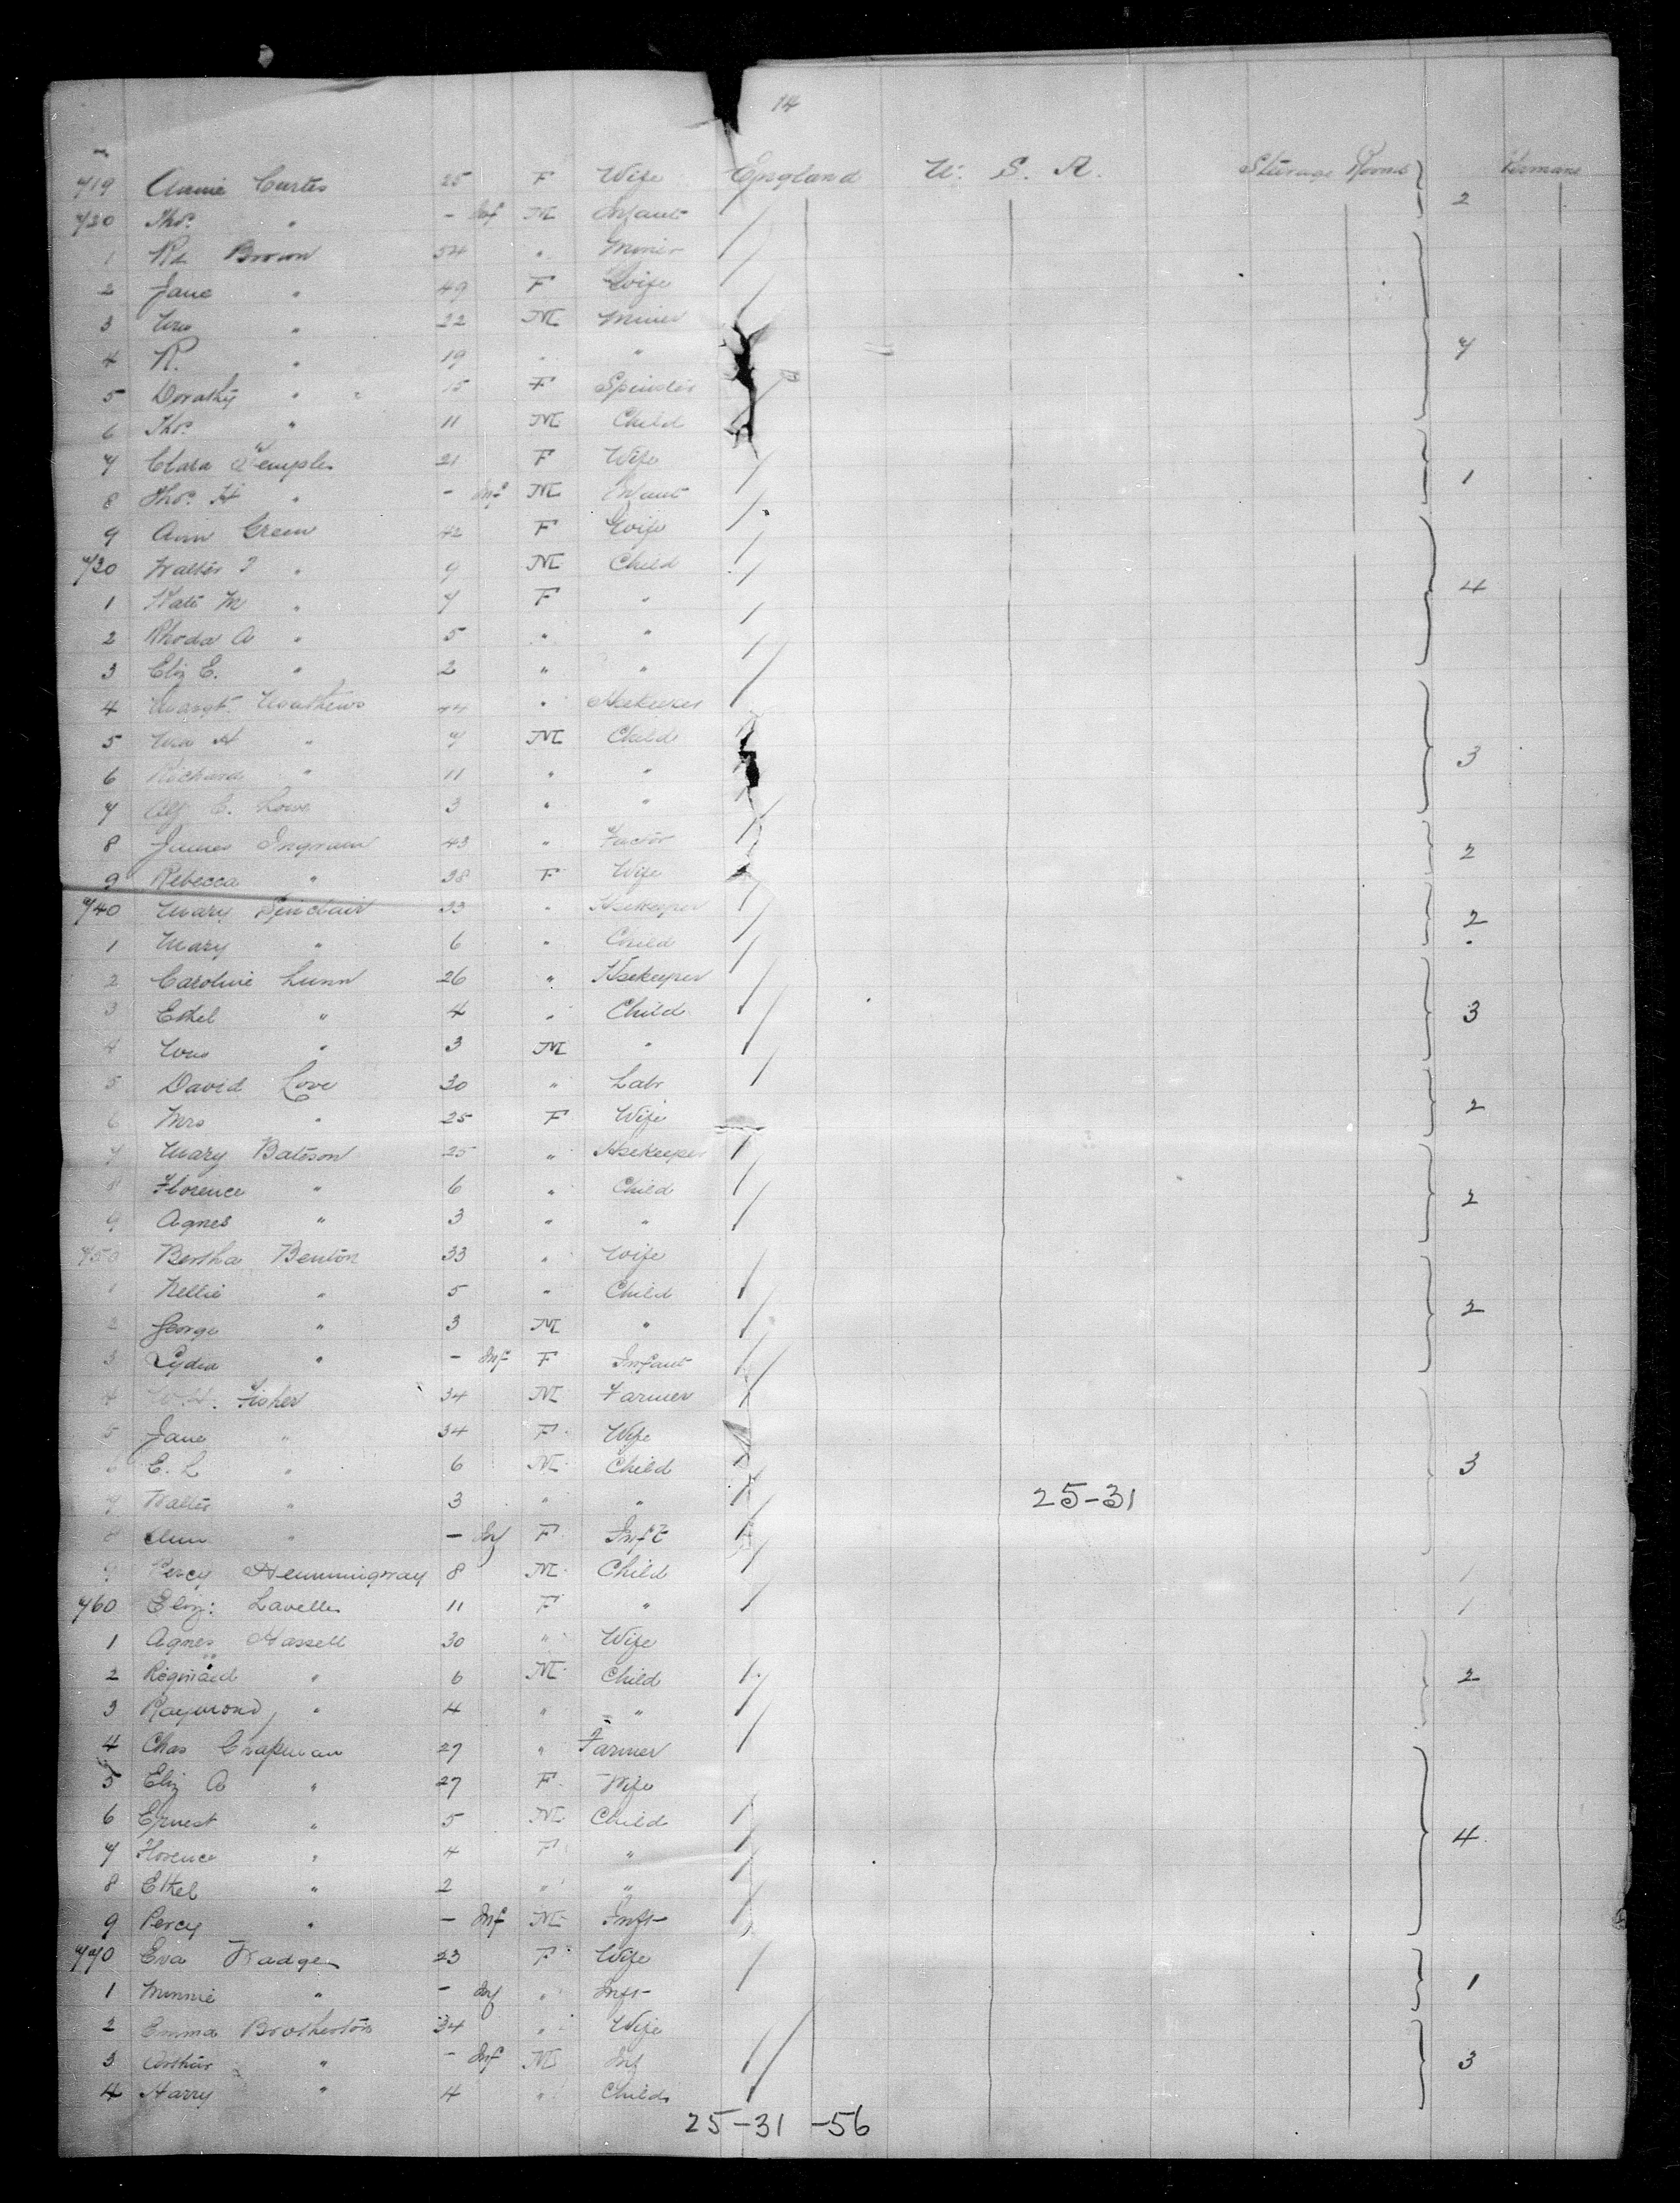 14
719 Annie Curtis 25 F Wife England U. S. A. Steerage Rooms 2 Permane
720 Thos " - Inf M Infant
1 Rd Brown 54 " Miner
2 Jane " 49 F Wife
3 Wm " 22 M Miner
4 R. " 19 " " 7
5 Dorathy " 15 F Spinster
6 Thos " 11 M Child
7 Clara Temples 21 F Wife 1
8 Thos H " - Inf M Infant
9 Ann Green 42 F Wife
730 Walter J " 9 M Child 4
1 Kate M " 7 F "
2 Rhoda A " 5 " "
3 Eliz E. " 2 " "
4 Margt Mathews 44 " Hsekeeper
5 Wm H " 7 M Child 3
6 Richard " 11 " "
7 Alf E. Lowe 3 " "
8 James Ingram 43 " Factor 2
9 Rebecca " 38 F Wife
740 Mary Sinclair 33 " Hsekeeper 2
1 Mary " 6 " Child
2 Caroline Lunn 26 " Hsekeeper
3 Ethel " 4 " Child 3
4 Wm " 3 M "
5 David Love 30 " Labr 2
6 Mrs " 25 F Wife
7 Mary Bateson 25 " Hsekeeper
8 Florence " 6 " Child 2
9 Agnes " 3 " "
750 Bertha Benton 33 " Wife
1 Nellie " 5 " Child 2
2 George " 3 M "
3 Lydia " - Inf F Infant
4 W. H. Fisher 34 M Farmer
5 Jane " 34 F Wife
6 E. L " 6 M Child 3
7 Walter " 3 " " 25-31
8 Ann " - Inf F Inft
9 Percy Hemmingway 8 M Child 1
760 Eliz: Lavelle 11 F " 1
1 Agnes Hassell 30 " Wife
2 Reginald " 6 M Child 2
3 Raymond " 4 " "
4 Chas Chapman 27 " Farmer
5 Eliz A " 27 F Wife
6 Ernest " 5 M Child
7 Florence " 4 F " 4
8 Ethel " 2 " "
9 Percy " - Inf M Inft
770 Eva Wadge 23 F Wife 1
1 Minnie " - Inf " Inft
2 Emma Brotherton 34 " Wife
3 Arthur " - Inf M Inf 3
4 Harry " 4 " Child
25-31 -56